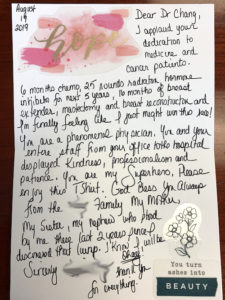 August
19
2019
hope
Dear Dr Chang,
I applaud your
dedication to
medicine and
cancer patients.
6 months chemo, 25 rounds radiation, hormone
inhibitor for next 5 years, 16 months of breast
extender, mastectomy and breast reconstruction and
I'm finally feeling like I just might win this war!
You are a phenomenal physician. You and your
entire staff from your office to the hospital
displayed Kindness, professionalism and
patience. You are my Superhero, Please
enjoy this TShirt. God bless you Always
from the Family My Mother,
My Sister, my nephews who stood
by me these last 2 years since I
discovered that lump. I know I will be
Thank you
for everything.
You turn
ashes into
BEAUTY